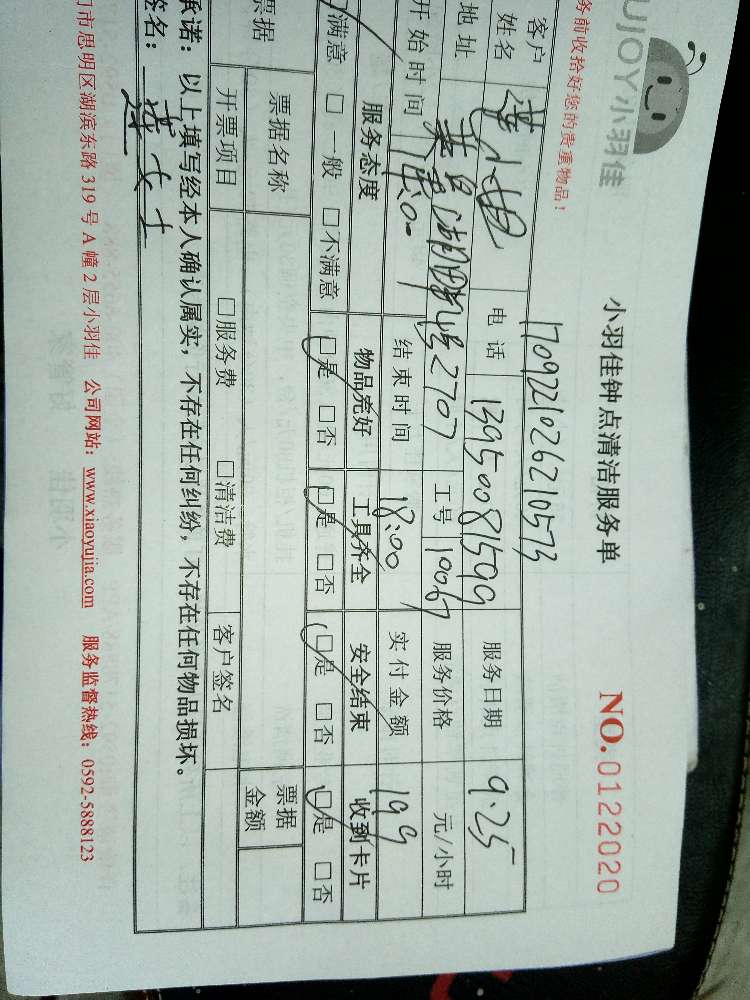 UJOY小羽佳
小羽佳钟点清洁服务单
NO.0122020
务前收拾好您的贵重物品！
1709221026210573
客户姓名 电话 13950081599 服务日期 9.25
地址 2707 工号 10067 服务价格 元/小时
开始时间 14:00 结束时间 18:00 实付金额 199
服务态度 物品完好 工具齐全 安全结束 收到卡片
满意 □一般 □不满意 □是 □否 □是 □否 □是 □否 □是 □否
票据 票据名称 票据金额
开票项目 □服务费 □清洁费 客户签名
承诺：以上填写经本人确认属实，不存在任何纠纷，不存在任何物品损坏。
签名：
门市思明区湖滨东路 319 号 A 幢 2 层小羽佳 公司网站：www.xiaoyujia.com 服务监督热线：0592-5888123